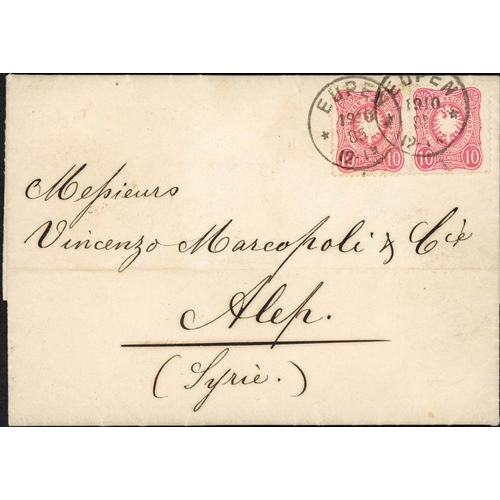 EUPEN
EUPEN
19 10
85
12
10 PFENNIG 10
10
Messieurs
Vincenzo Marcopoli & Cie
Alep.
(Syrie.)